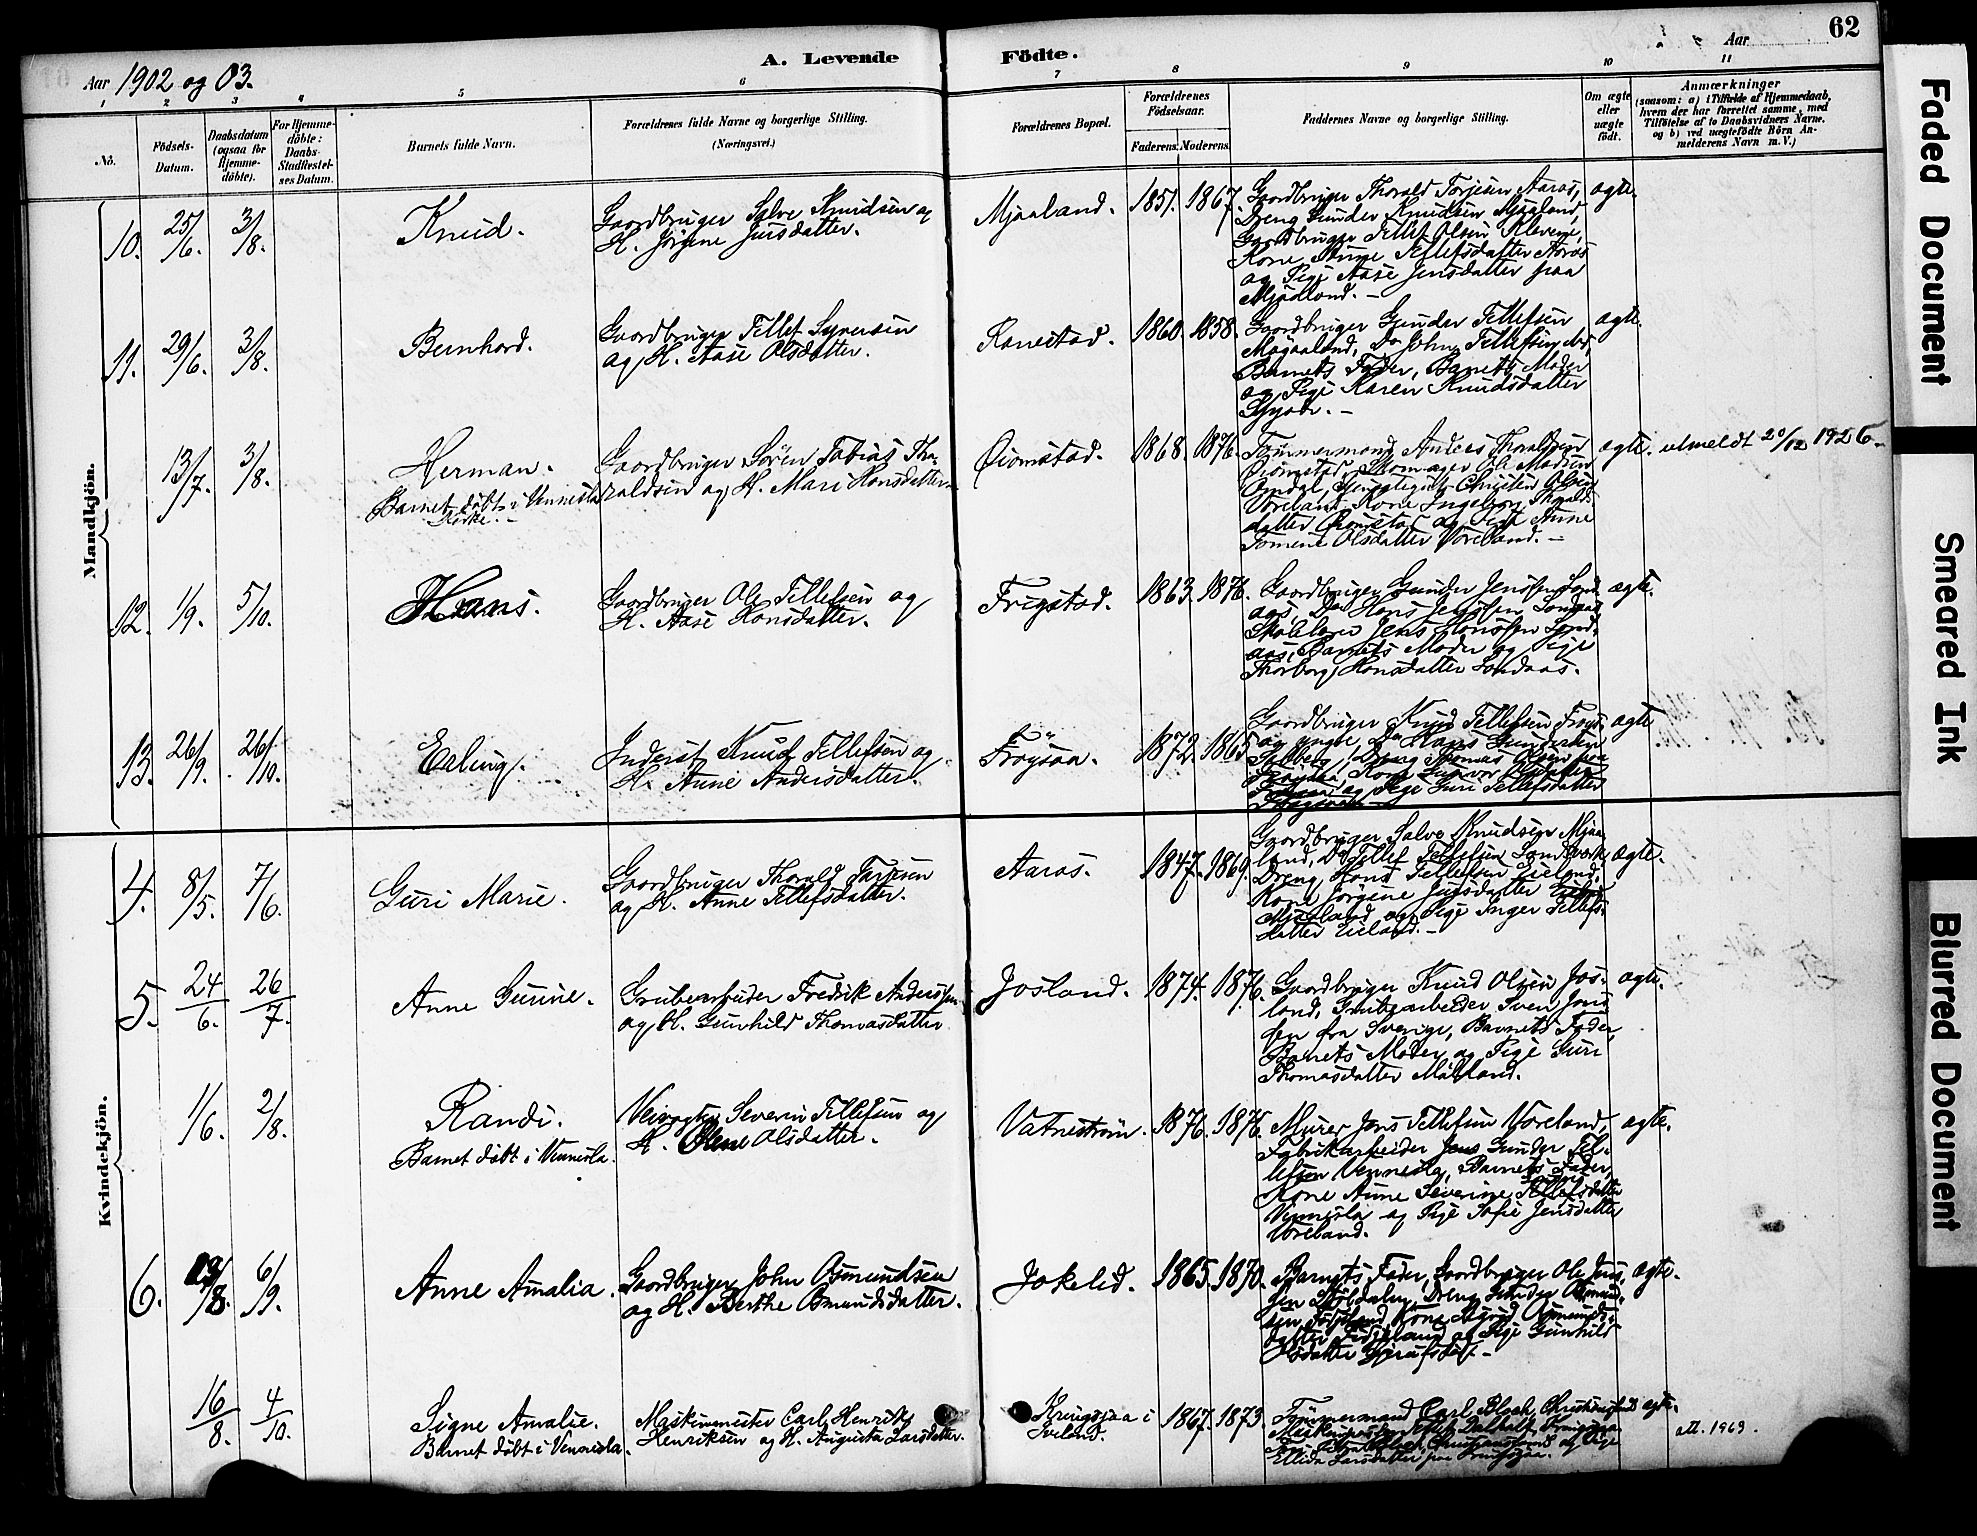 62
A. Levende Födte.
Aar 1902 og 03.
Aar
1 2 3 4 5 6 7 8 9 10 11
No.
Födsels-Datum.
Daabsdatum (ogsaa for Hjemme-döbte).
For Hjemme-döbte: Daabs-Stadfæstel-ses Datum.
Barnets fulde Navn.
Forældrenes fulde Navne og borgerlige Stilling.
(Næringsvei.)
Forældrenes Bopæl.
Forældrenes Födselsaar.
Faderens. Moderens.
Faddernes Navne og borgerlige Stilling.
Om ægte eller uægte födt.
Anmærkninger
(saasom: a) i Tilfælde af Hjemmedaab,
hvem der har forrettet samme, med
Tilföielse af to Daabsvidners Navne,
og b) ved uægtefödte Börn An-
melderens Navn m. V.)
Mandkjön.
10. 25/6. 3/8. Knud.
Gaardbruger Salve Knudsen og
H. Jørgine Jursdatter.
Mjaaland. 1851. 1867.
Gaardbruger Thorald Torjesen Aaros,
Dreng Gunder Knudsen Mjaaland,
Gaardbruger Tellef Olsen Klevene,
Kone Anne Tellefsdatter Aaros
og Pige Aase Jensdatter paa
Mjaaland. –
ægte.
11. 29/6. 3/8. Bernhard.
Gaardbruger Tellef Syversen
og H. Aase Olsdatter.
Ranestad. 1860. 1858.
Gaardbruger Gunder Tellefsen
Do John Tellefsen
Barnets Fader, Barnets Moder
og Pige Karen Knudsdatter
ægte.
13/7. 3/8. Herman.
Barnet døbt i Vennesla
Kirke. –
Gaardbruger Søren Tobias Tho-
raldsen og H. Mari Hansdatter.
Øiomstad. 1868. 1876.
Tømmermand Anders Thoraldsen
Øiomstad, Ole Madsen
Omdal, Christen Olsen
Voreland, Kone Ingeborg Thorald-
datter Øiomstad og Pige Anne
Tomine Olsdatter Voreland. –
ægte. utmeldt 20/12 1926.
12. 1/9. 5/10. Hans.
Gaardbruger Ole Tellefsen og
H. Aase Hansdatter.
Frigstad. 1863. 1876.
Gaardbruger Gunder Jenssen Land-
aas, Do Hans Jenssen Landaas,
Jens Hanssen Land-
aas, Barnets Moder og Pige
Thorborg Hansdatter Landaas.
ægte.
13. 26/9. 26/10. Erling.
Inderst Knud Tellefsen og
H. Anne Andersdatter.
Frøysaa. 1872. 1865.
Gaardbruger Knud Tellefsen Frøys-
aa yngre, Do Hans Gundersen
Dreng Thomas Olsen
Frøysaa, Kone Gunvor
og Pige Guri Tellefsdatter
ægte
Kvindekjön.
4. 8/5. 7/6. Guri Marie.
Gaardbruger Thorald Torjesen
og H. Anne Tellefsdatter.
Aaros. 1847. 1869.
Gaardbruger Salve Knudsen Mjaa-
land, Do Tellef Tellefsen
Dreng Hans Tellefsen Eieland,
Kone Jørgine Jursdatter
Mjaaland og Pige Inger Tellefs-
datter Eieland. –
ægte.
5. 24/6. 26/7. Anne Gurine.
Grubearbeider Fredrik Anderssen
og H. Gunhild Thomasdatter
Josland. 1874. 1876.
Gaardbruger Knud Olsen Jos-
land, Grubearbeider Sven Jons-
sen fra Sverige, Barnets Fader,
Barnets Moder og Pige Guri
Thomasdatter
ægte.
1/6. 2/8. Randi.
Barnet døbt i Vennesla.
Veivogter Severin Tellefsen og
H. Olene Olsdatter.
Vatnestrøm. 1876. 1876.
Murer Jens Tellefsen Voreland,
Fabrikarbeider Jens Gunder Tel-
lefsen Vennesla, Barnets Fader,
Kone Anne Severine Tellefsdatter
Vennesla og Pige Sofie Jensdatter
Voreland.
ægte.
6. /8. 6/9. Anne Amalia.
Gaardbruger John Osmundsen
og H. Berthe Osmundsdatter.
Jokelid. 1865. 1870.
Barnets Fader, Gaardbruger Ole Jens-
sen Dreng Gunder Osmund-
sen Kone Sigrid Osmunds-
datter og Pige Gunhild
Olsdatter
ægte.
16/8. 4/10. Signe Amalie.
Barnet døbt i Vennesla.
Maskinmester Carl Henrik
Henriksen og H. Augusta Larsdatter.
Kringsjaa i
Iveland. 1867. 1873.
Tømmermand Carl Bloch, Christianssand
Christianssand og Pige
Ellida Larsdatter
ægte.
att. 1963.
Faded Document
Smeared Ink
Blurred Document